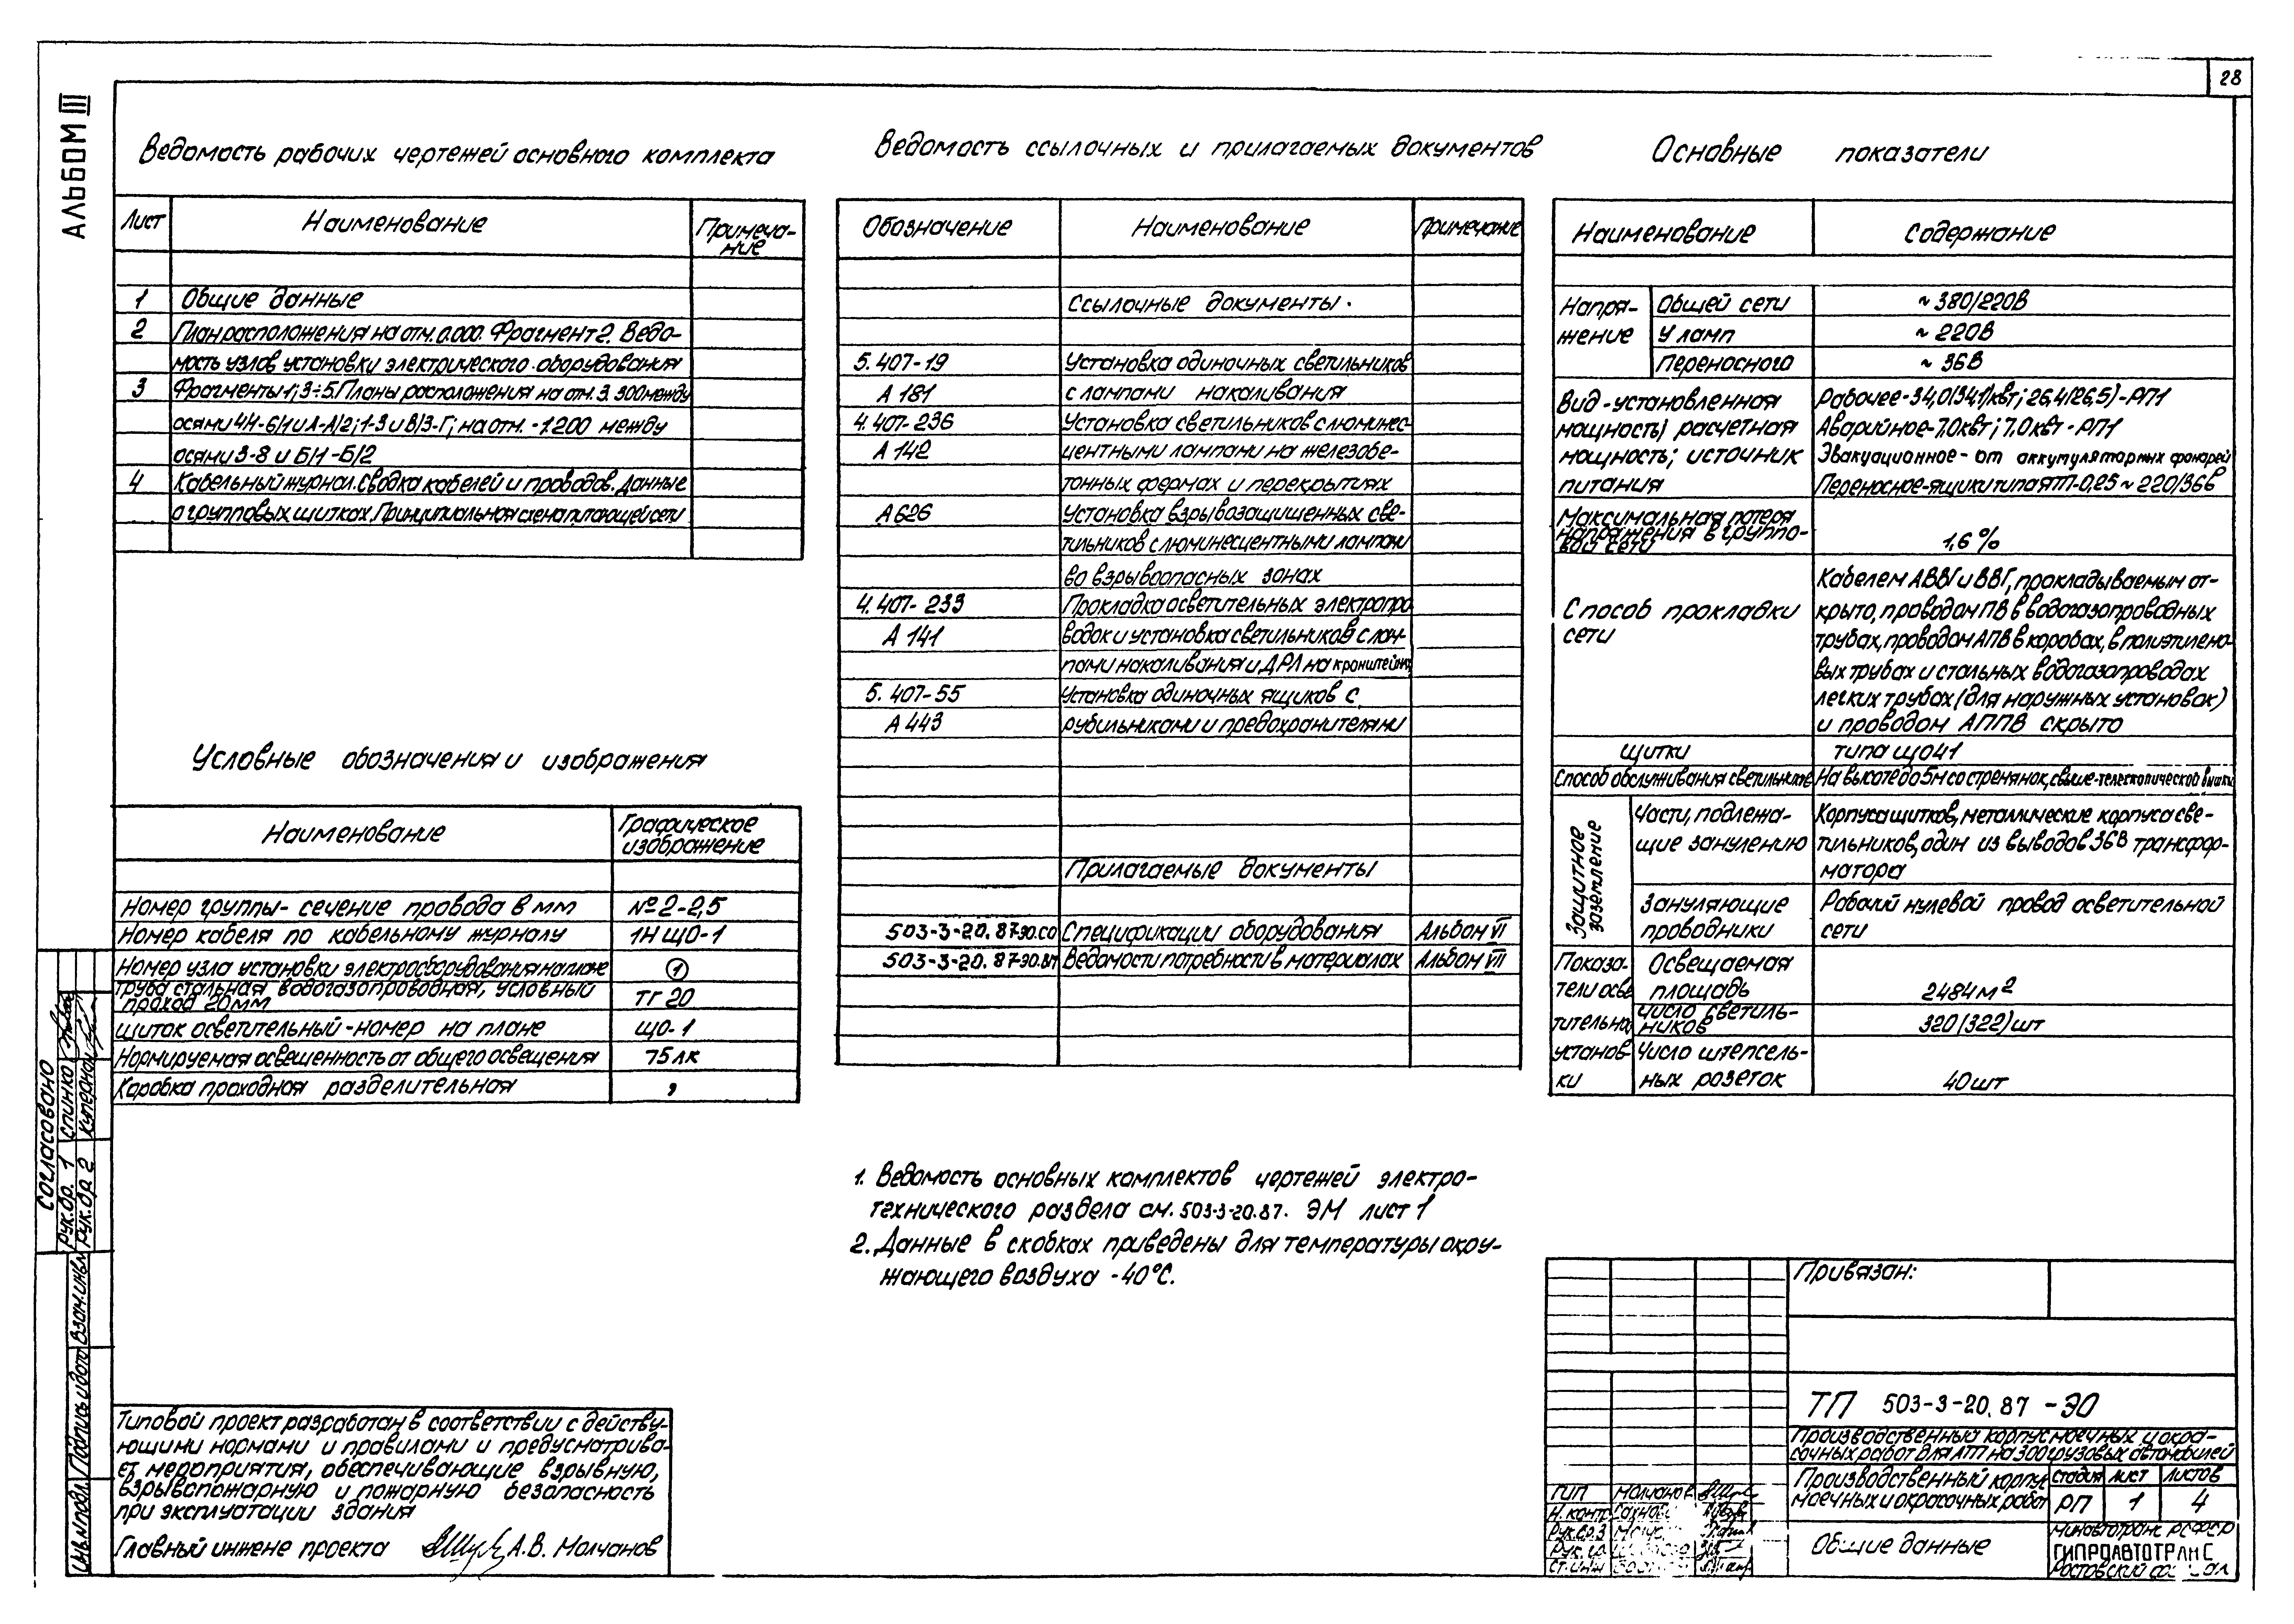 28
АЛЬБОМ III
Ведомость рабочих чертежей основного комплекта
Лист Наименование Примеча-
ние
1 Общие данные
2 План расположения на отм. 0.000. Фрагмент 2. Ведо-
мость узлов установки электрического оборудования
3 Фрагменты 1; 3÷5. Планы расположения на отм. 3.300 между
осями 4/1-6/1 и А-А/2; 1-3 и В/3-Г; на отм. -1.200 между
осями 3-8 и Б/1-Б/2
4 Кабельный журнал. Сводка кабелей и проводов. Данные
о групповых щитках. Принципиальная схема питающей сети
Условные обозначения и изображения
Наименование Графическое
изображение
Номер группы - сечение провода в мм №2-2,5
Номер кабеля по кабельному журналу 1Н ЩО-1
Номер узла установки электрооборудования на плане 1
Труба стальная водогазопроводная, условный
проход 20мм ТГ 20
Щиток осветительный - номер на плане ЩО-1
Нормируемая освещенность от общего освещения 75 лк
Коробка проходная разделительная
Ведомость ссылочных и прилагаемых документов
Обозначение Наименование Примечание
Ссылочные документы.
5.407-19 Установка одиночных светильников
А 181 с лампами накаливания
4.407-236 Установка светильников с люминес-
А 142 центными лампами на железобе-
тонных фермах и перекрытиях
А626 Установка взрывозащищенных све-
тильников с люминесцентными лампами
во взрывоопасных зонах
4.407-233 Прокладка осветительных электропро
А 141 водок и установка светильников с лам-
пами накаливания и ДРЛ на кронштейнах
5.407-55 Установка одиночных ящиков с
А 443 рубильниками и предохранителями
Прилагаемые документы
503-3-20.87-ЭО.СО Спецификации оборудования Альбом VI
503-3-20.87-ЭО.ВМ Ведомости потребности в материалах Альбом VII
Основные показатели
Наименование Содержание
Напря-
жение
Общей сети ~ 380/220В
У ламп ~ 220В
Переносного ~ 36В
Вид - установленная Рабочее - 34,0(34,1)квт; 26,4(26,5) - РП1
мощность; расчетная Аварийное - 7.0квт; 7.0квт - РП1
мощность; источник Эвакуационное - от аккумуляторных фонарей
питания Переносное - ящики типа ЯТП-0,25 ~ 220/36В
Максимальная потеря
напряжения в группо-
вой сети 1,6 %
Способ прокладки
сети
Кабелем АВВГ и ВВГ, прокладываемым от-
крыто, проводом ПВ в водогазопроводных
трубах, проводом АПВ в коробах, в полиэтилено-
вых трубах и стальных водогазопроводах
легких трубах (для наружных установок)
и проводом АППВ скрыто
Щитки типа ЩО41
Способ обслуживания светильников На высоте до 5м со стремянок, свыше - телескопической вышки
Защитное
заземление
Части, подлежа-
щие занулению
Корпуса щитков, металлические корпуса све-
тильников, один из выводов 36В трансфор-
матора
Зануляющие
проводники
Рабочий нулевой провод осветительной
сети
Показа-
тели осве
тительной
установ-
ки
Освещаемая
площадь 2484м2
Число светиль-
ников 320(322)шт
Число штепсель-
ных розеток 40 шт
1. Ведомость основных комплектов чертежей электро-
технического раздела см. 503-3-20.87. ЭМ лист 1
2. Данные в скобках приведены для температуры окру-
жающего воздуха -40°С.
Типовой проект разработан в соответствии с действу-
ющими нормами и правилами и предусматрива-
ет мероприятия, обеспечивающие взрывную,
взрывопожарную и пожарную безопасность
при эксплуатации здания
Главный инжене проекта А.В. Молчанов
СОГЛАСОВАНО
Рук.бр. 1 Спинко
Рук.бр 2
Инв.№подл. Подпись и дата Взам.инв.№
Привязан:
ТП 503-3-20.87 -ЭО
Производственный корпус моечных и окра-
сочных работ для АТП на 300 грузовых автомобилей
Производственный корпус
моечных и окрасочных работ
Стадия Лист Листов
РП 1 4
Общие данные
Минавтотранс РСФСР
ГИПРОАВТОТРАНС
Ростовский филиал
ГИП Молчанов
Н. конт.
Рук.бр.3
Рук. гр.
Ст. инж